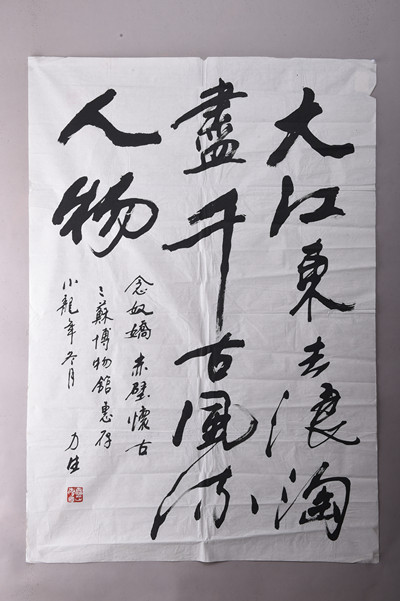 大江東去浪淘
盡千古風流
人物
念奴嬌 赤壁懷古
三蘇博物館惠存
小龍年冬月 力生